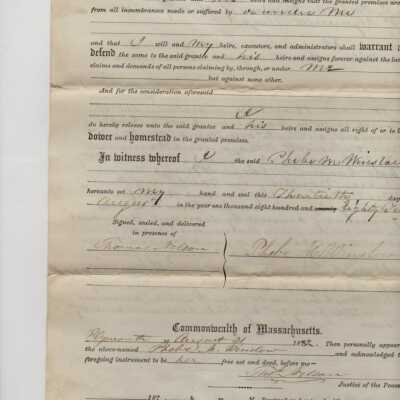 heirs and assigns that the granted premises are
from all incumbrances made or suffered by or under Me
and that I will and My heirs, executors, and administrators shall warrant a
defend the same to the said grantee and his heirs and assigns forever against the law
claims and demands of all persons claiming by, through, or under Me
but against none other.
And for the consideration aforesaid
I
do hereby release unto the said grantee and his heirs and assigns all right of or to b
dower and homestead in the granted premises.
In witness whereof I the said Phebe M Winslow
hereunto set my hand and seal this day
August in the year one thousand eight hundred and eighty
Signed, sealed, and delivered
in presence of
Phebe M Winslow
Commonwealth of Massachusetts.
Plymouth August 31 188 Then personally appeared
the above-named Phebe M. Winslow and acknowledged t
foregoing instrument to be her free act and deed, before me—
Justice of the Peace
187